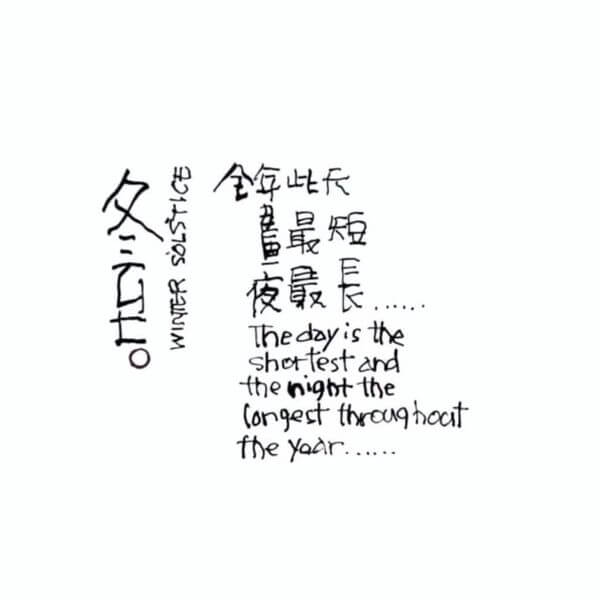 冬至。
WINTER SOLSTICE
全年此天
晝最短
夜最長......
The day is the
shortest and
the night the
longest throughout
the year......